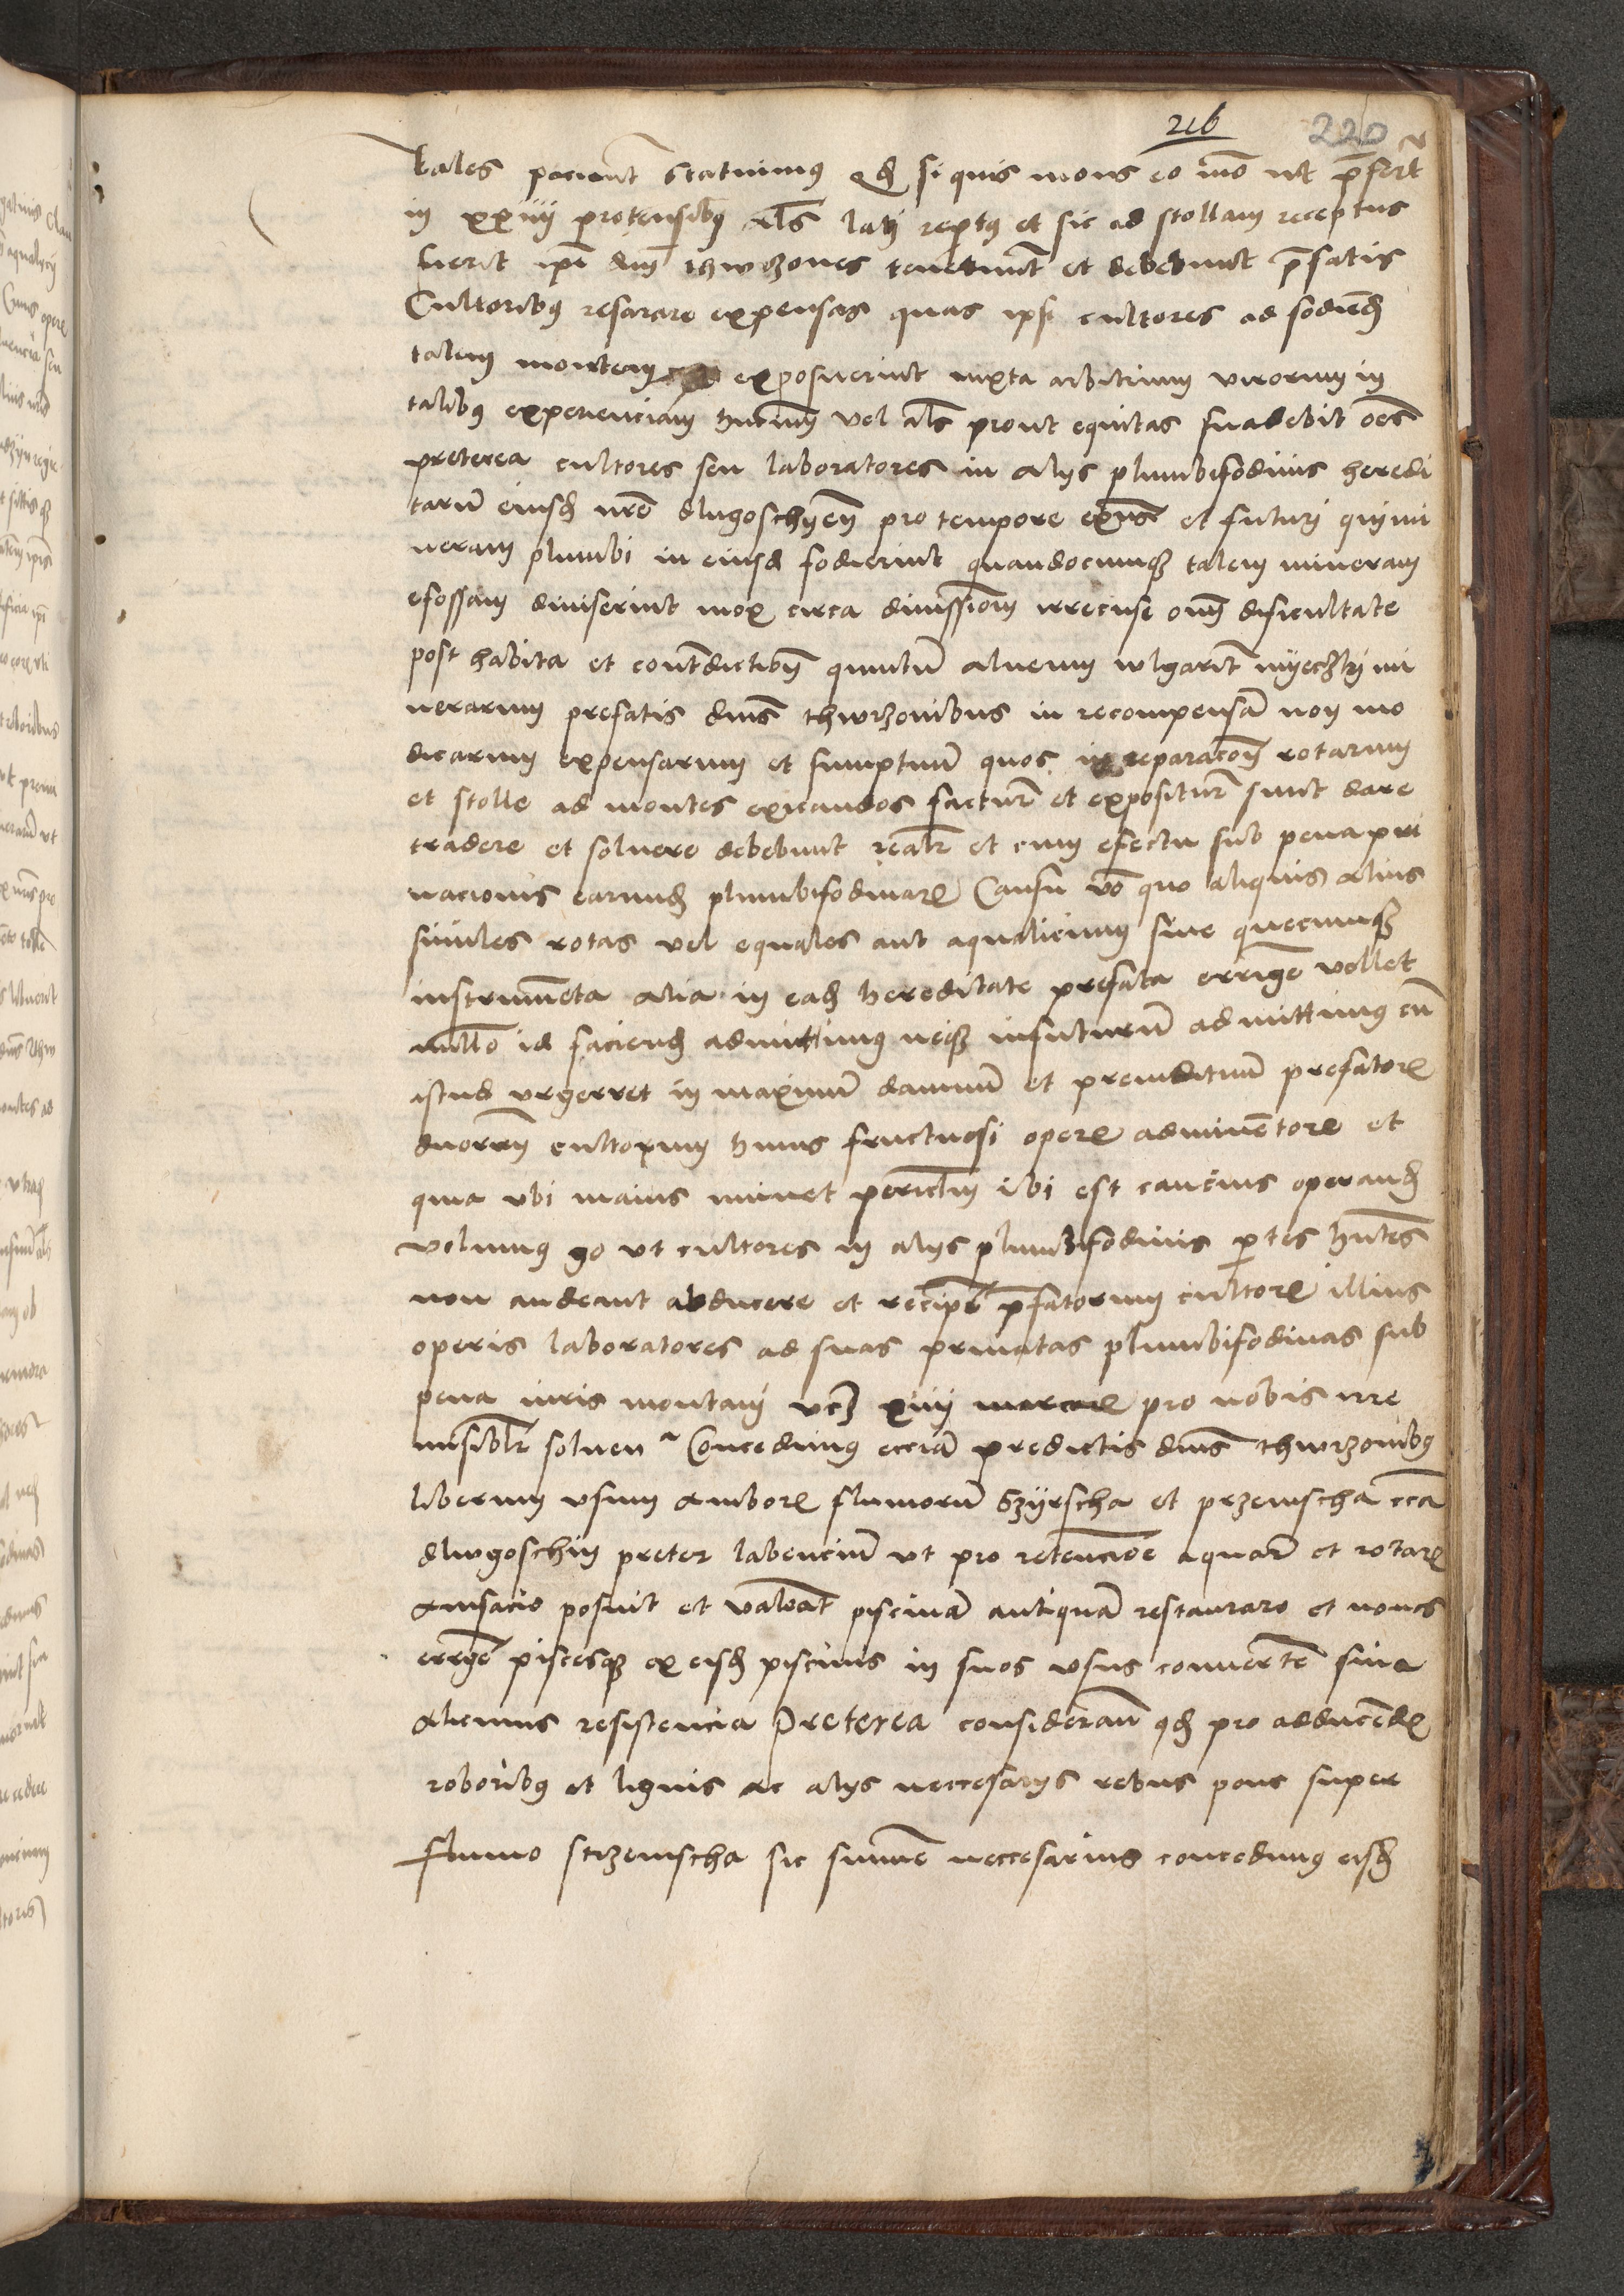 216 220
tales paciunt̄ Statuimus qd̄ si quis mons eo mō ut p̄fert̄
in xxiiij protensibus als̄ latj rep̄tus et sic ad stollam receptus
fuerit ip̄i dn̄i thwrzones tenebunt̄ et debebunt p̄fatis
Cultoribus resarare expensas quas ipsi cultores ad fodiend̄
talem montem exposuerint iuxta arbitrium virorum in
talibus experienciam hn̄cium vel als̄ prout equitas suadebit oēs
preterea cultores seu laboratores in alijs plumbifodinis heredi
tatum eiusd̄ nr̄e dlugoschijem̄ pro tempore exn̄s et futurj qui mi
neram plumbi in eisd̄ foderint quandocumq talem mineram
efossam diuiserint mox circa diuissiom̄ irrecuse om̄ dificultate
post habita et contd̄ictiom̄ quintum alueum wlgarit̄ nyeczkij mi
nerarum prefatis dn̄is thwrzonibus in recompensam̄ non mo
dicarum expensarum et sumptuum̄ quos in reparacom̄ rotarum
et stolle ad montes exicandos factur̄ et expositur̄ sunt dare
tradere et soluere debebunt realr̄ et cum efectu sub pena pri
uacionis earund̄ plumbifodinar̄ Casu vō quo aliquis alius
similes rotas vel equales aut aqualicium siue quecumq
instrumēta alia in ead̄ hereditate prefata errigē vellet
nullo id faciend̄ admittimus neq infuturum̄ admittimus cū
istud vrgerret in maximum̄ damnum̄ et preiuditium̄ prefator̄
dn̄orum̄ cultorum huius fructuosi oper̄ adinuentor̄ et
quia vbi maius iminet periclm̄ ibi est caucius operand̄
volumus go vt cultores in alijs plumbifodinis p̄tes hn̄tes
non audeant abducere et recipē p̄fatorum cultor̄ illius
operis laboratores ad suas priuatas plumbifodinas sub
pena iuris montanj vcz xiiij marcar̄ pro nobis irre
misiblr̄ soluen̄ Concedimus eciam̄ predictis dn̄is thwrzonibus
liberum vsum ambor̄ fluuiorum̄ Szijrscha et przemscha cc̄a
dlwgoschin preter labencium̄ vt pro retencione aquar̄ et rotar̄
ansacio posuit et valeāt piscinam̄ antiquam̄ restaurare et nouas
errigē piscesq ex eisd̄ piscinis in suos vsus conuertē sine
alicuius resistencia Preterea considerān qd̄ pro adducēd̄
roboribus et lignis ac alijs neccesarijs rebus pons super
fluuio strzemscha sic summe neccesarius concedimus eisd̄